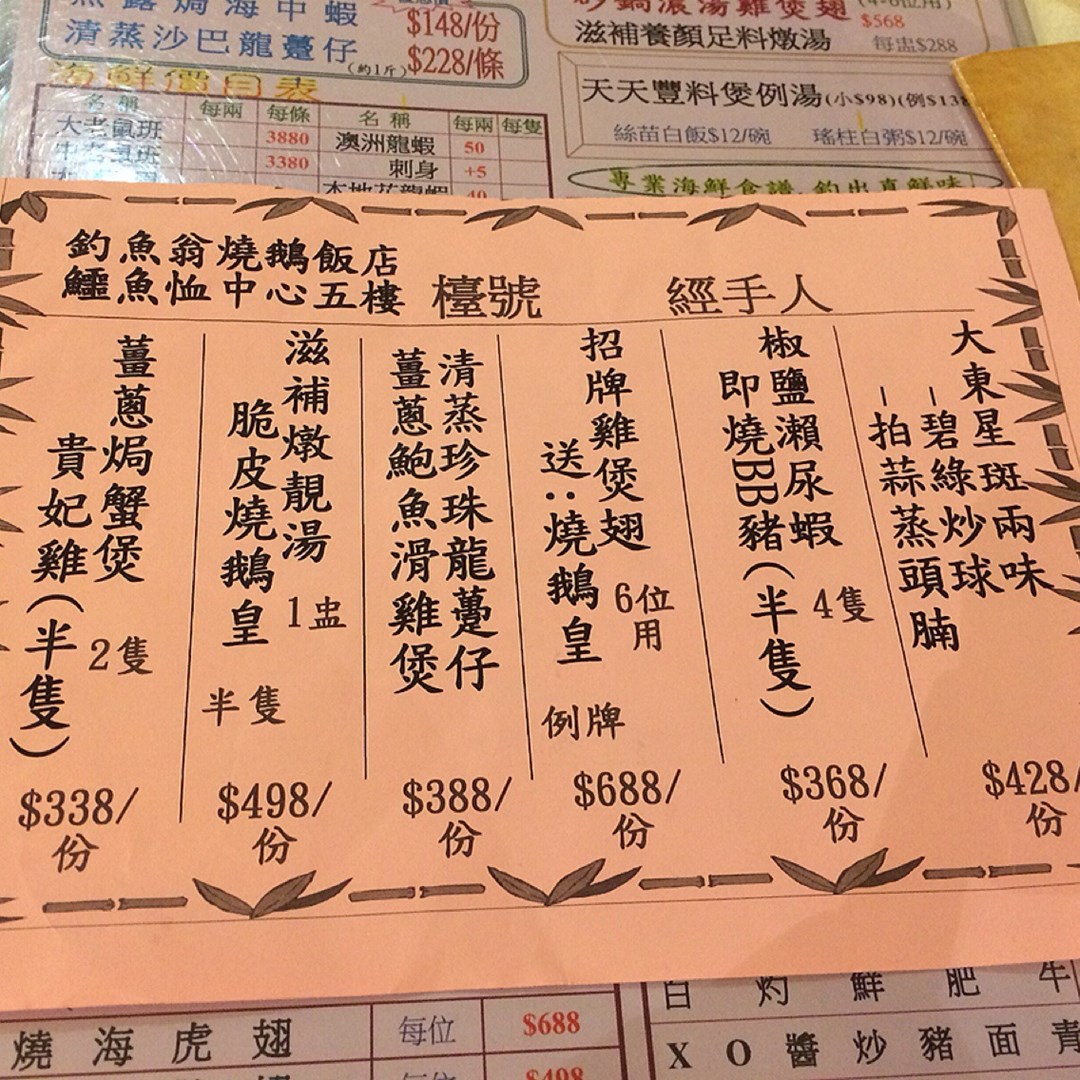 焗海中蝦
$148/份
清蒸沙巴龍躉仔
(約1斤)
$228/條
海鮮價目表
名稱 每兩 每條 名稱 每兩 每隻
大老鼠班 3880 澳洲龍蝦 50
3380 刺身 +5
砂鍋濃湯雞煲翅
$568
滋補養顏足料燉湯 每盅$288
天天豐料煲例湯(小$98)(例$138
絲苗白飯$12/碗 瑤柱白粥$12/碗
專業海鮮食譜,釣出真鮮味
釣魚翁燒鵝飯店
鱷魚恤中心五樓
檯號
經手人
大東星斑兩味
–碧綠炒球
–拍蒜蒸頭腩
$428/份
椒鹽瀨尿蝦 4隻
即燒BB豬(半隻)
$368/份
招牌雞煲翅 6位用
送:燒鵝皇 例牌
$688/份
清蒸珍珠龍躉仔
薑蔥鮑魚滑雞煲
$388/份
滋補燉靚湯 1盅
脆皮燒鵝皇 半隻
$498/份
薑蔥焗蟹煲 2隻
貴妃雞(半隻)
$338/份
燒海虎翅 每位 $688
白灼鮮肥牛
XO醬炒豬面青